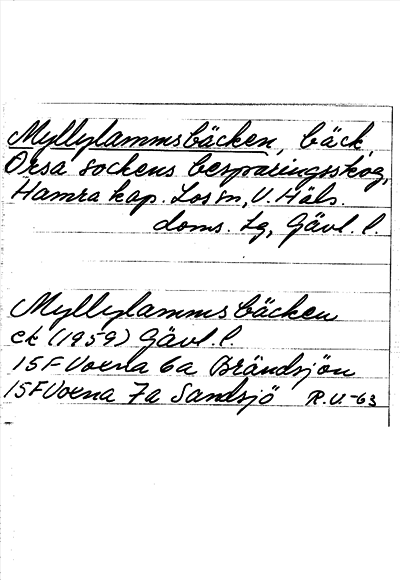 Myllylammsbäcken, bäck,
Orsa sockens besparingsskog,
Hamra kap. Los sn, V. Häls.
doms. lg, Gävl. l.
Myllylammsbäcken
ek (1959) Gävl. l.
15F Voxna 6a Brändsjön
15F Voxna 7a Sandsjö R.U.-63